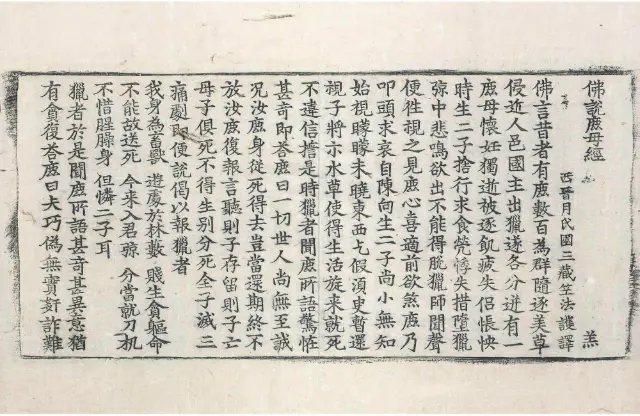 佛說鹿母經 羔
西晉月氏國三藏竺法護譯
佛言昔者有鹿數百為群隨逐美草
侵近人邑國主出獵遂各分迸有一
鹿母懷妊獨逝被逐飢疲失侶悵怏
時生二子捨行求食煢悸失措墮獵
弶中悲鳴欲出不能得脫獵師聞聲
便往視之見鹿心喜適前欲煞鹿乃
叩頭求哀自陳向生二子尚小無知
始視矇矇未曉東西乞假須臾暫還
視子將示水草使得生活旋來就死
不違信誓是時獵者聞鹿所語驚恠
甚奇即荅鹿曰一切世人尚無至誠
況汝鹿身從死得去豈當還期終不
放汝鹿復報言聽則子存留則子亡
母子俱死不得生別分死全子滅三
痛劇耶便說偈以報獵者
我身為畜獸 遊處於林藪 賤生貪軀命
不能故送死 今來入君弶 分當就刀机
不惜腥臊身 但憐二子耳
獵者於是聞鹿所語甚奇甚異意猶
有貪復荅鹿曰夫巧偽無實奸詐難